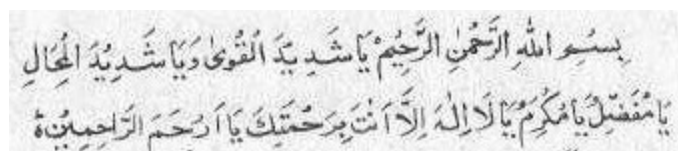 بِسْمِ اللهِ الرَّحْمٰنِ الرَّحِيْمْ يَا شَدِيْدَ الْقُوىٰ وَيَا شَدِيْدَ الْمِحَالِ
يَا مُفَضِّلُ يَا مُكْرِمُ يَا لَا اِلٰهَ اِلَّا اَنْتَ بِرَحْمَتِكَ يَا اَرْحَمَ الرَّاحِمِيْنَ ۃ